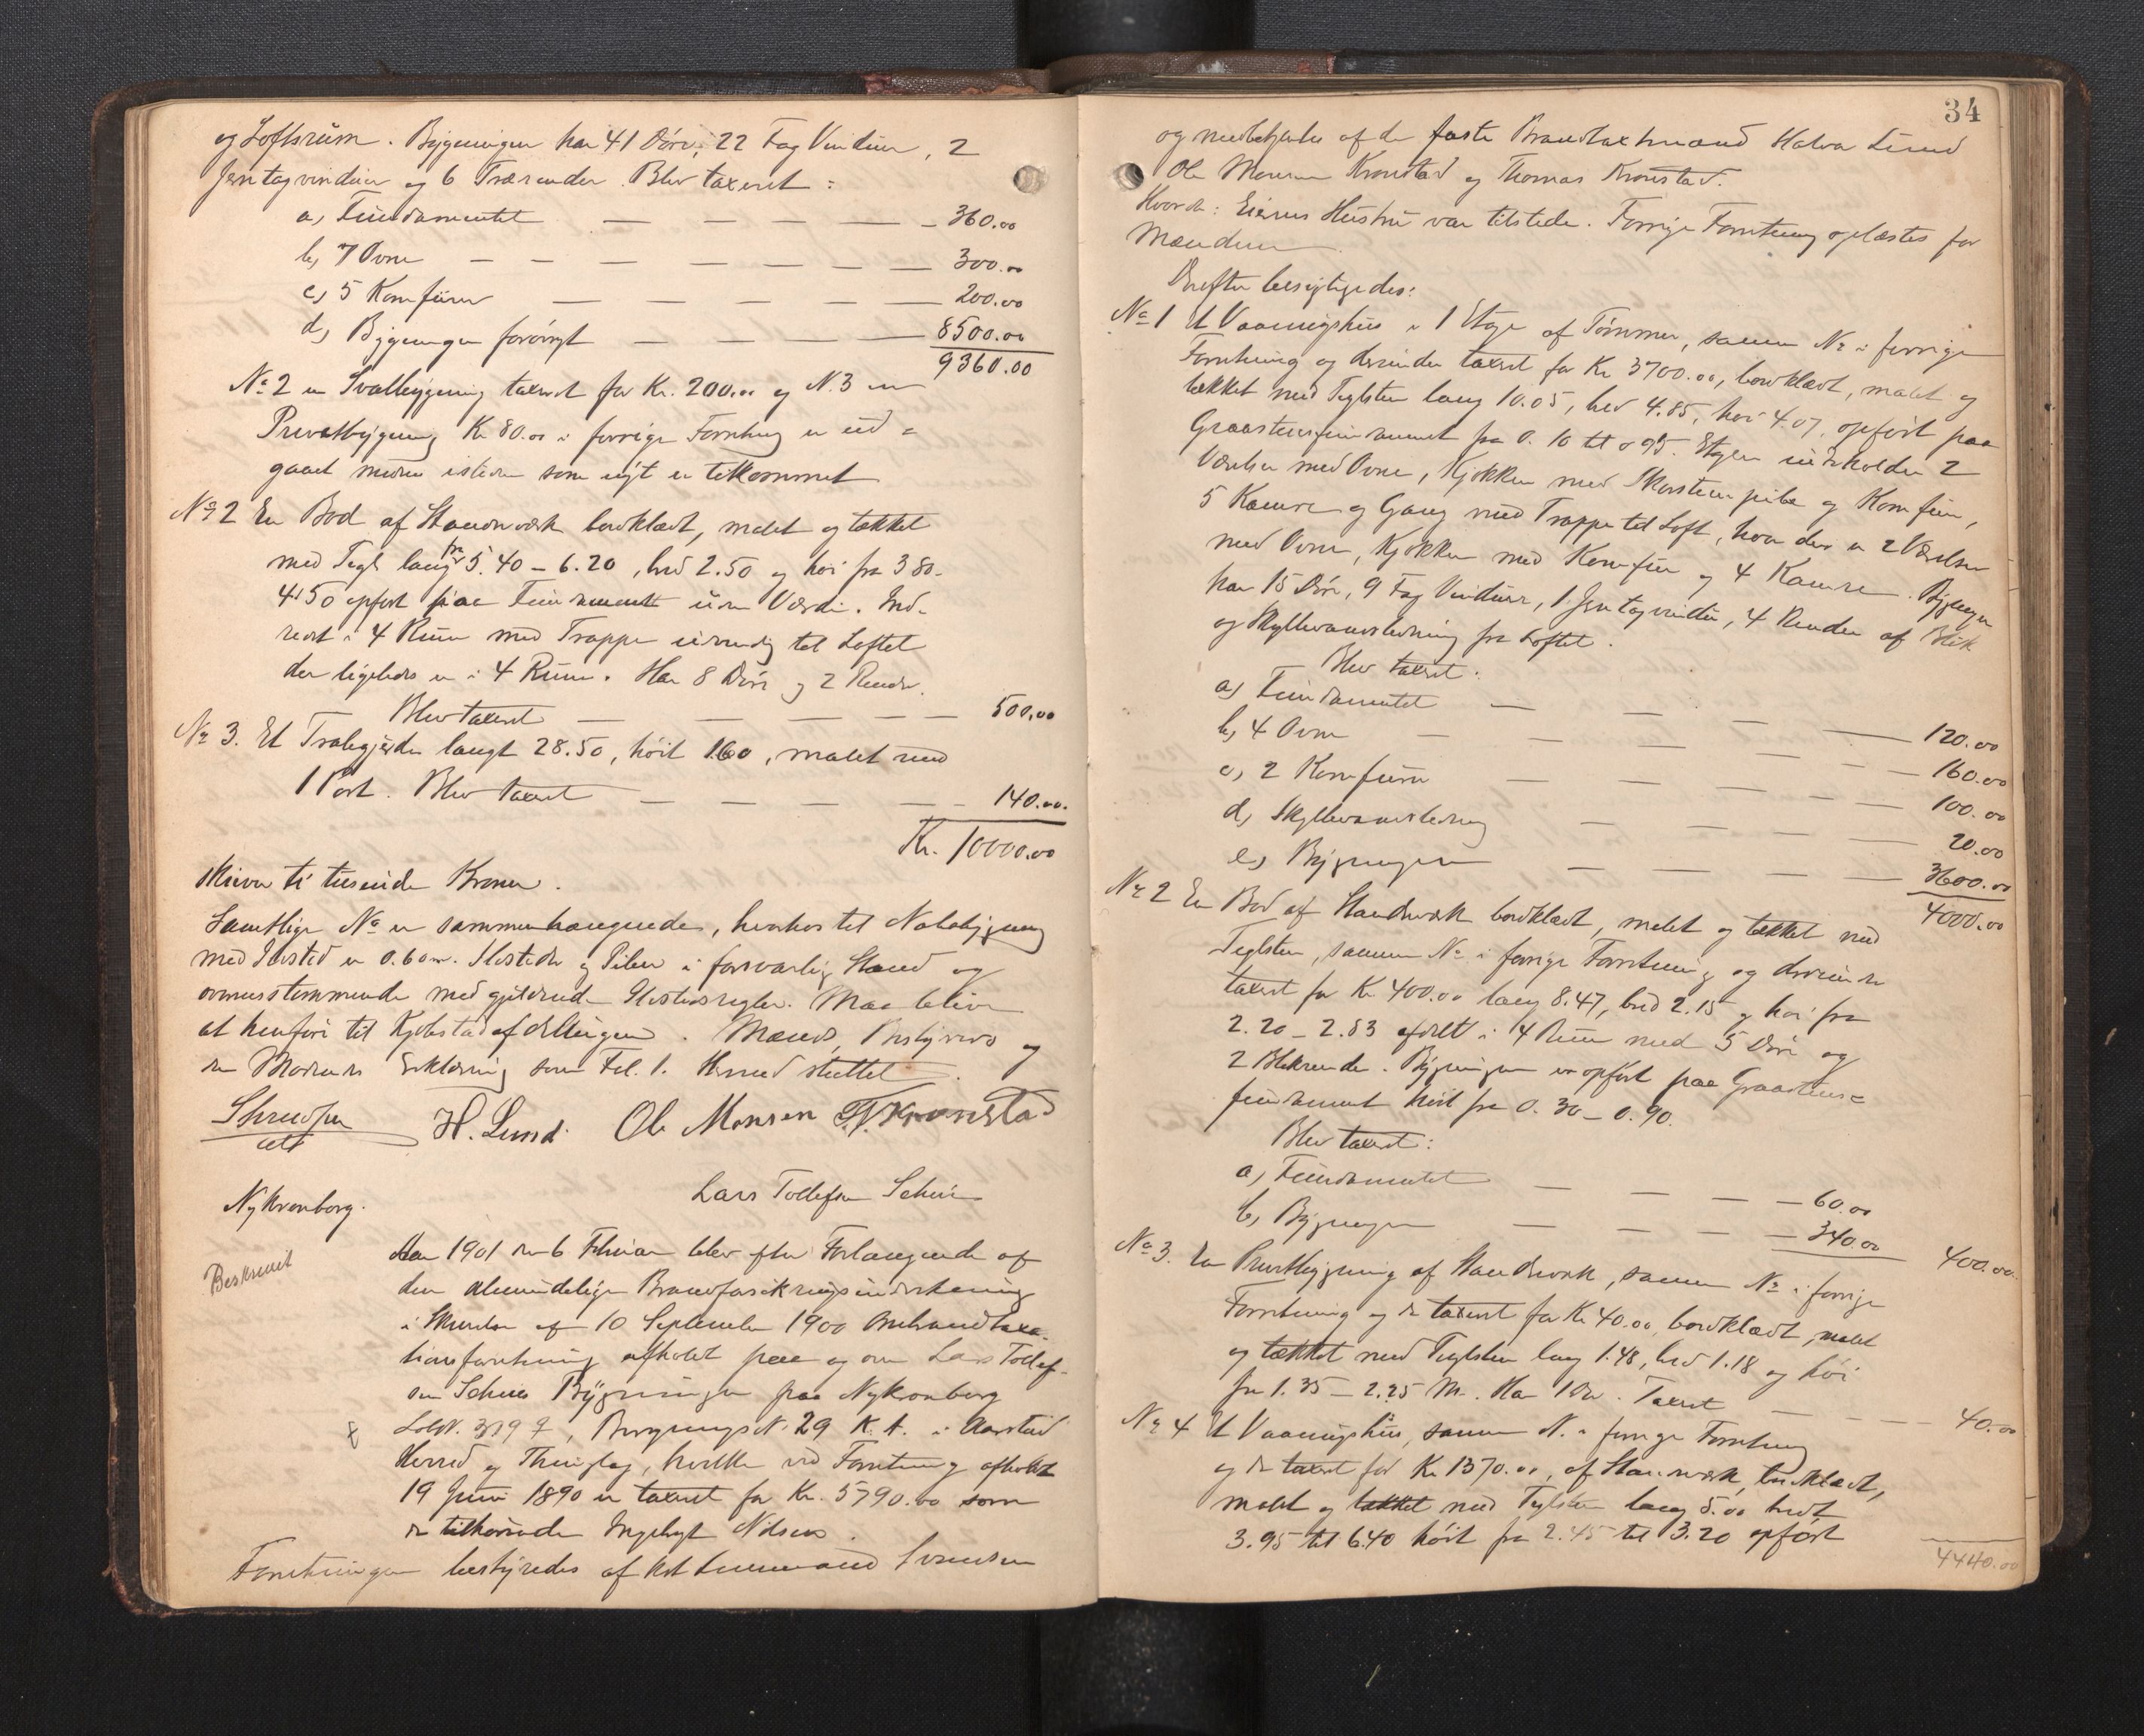 og Loftsrum. Bygningen har 41 Döre, 22 Fag Vinduer, 2
Jerntagvinduer og 6 Trærender. Blev taxeret:
a, Fundamentet — — — — 360.00
b, 7 Ovne — — — — — — — 300.00
c, 5 Komfürer — — — — — 200.00
d, Bygningen forövrigt — — — — 8500.00
9360.00
No 2 en Svalbygning taxeret for Kr. 200.00 og N. 3 en
Privetbygning Kr 80.00 i forrige Forretning er ud=
gaaet medens istedn som nyt er tilkommet
No 2 En Bod af Standværk bordklædt, malet og tækket
med Tegl lang fra 5.40 – 6.20, bred 2.50 og höi fra 3 80 –
4.50 opfört paa Fundament uden Værdi. Ind-
redet i 4 Rum med Trappe udvendig til Loftet
der ligeledes er i 4 Rum. Har 8 Döre og 2 Render.
Blev taxeret — — — — — 500.00
No 3. Et Træbgjærde langt 28.50, höit 1.60, malet med
1 Port. Blev taxeret — — — — — 140.00.
Kr. 10000.00
Skriver ti tusinde Kroner.
Samtlige No er sammenhængende, hvorhos til Nabobygning
med Ildsted er 0.60 m. Ildsteder og Piber i forsvarlig Stand og
overensstemmende med gjeldende Ildstedsregler. Maa blive
at henföre til Kjöbstadafdelingen. Mænds, Bestyrers og
den Mødendes Erklæring som Fol. 1. Hermed sluttet.
H. Lund. Ole Monsen T. Kronstad
Nykronborg. Lars Tollefsen
Beskrevet
Aar 1901 den 6 Februar blev efter Forlangende af
den almindelige Brandforsikringsindretning
i Skrivelse af 10 September 1900 Ombrandtaxa-
tionsforretning afholdt paa og over Lars Tollef-
sen Bygninger paa Nykronborg
Lol. 319 f, Bergnings N. 29 K. A. i Aarstad
Herred og Thinglag, hvilke ved Forretning afholdt
19 Juni 1890 er taxeret for Kr. 5790.00 som
da tilhörende Ingebrigt Nilsen.
Forretningen bestyredes af kst Lensmand Svendsen
34
og medbetjentes af de faste Brandtaxtmænd Halvor Lund
Ole Monsen Kronstad og Thomas Kronstad.
Hvorda: Eierens Hustru var tilstede. Forrige Forretning oplæstes for
Mændene.
Derefter besigtigedes:
No 1 Et Vaaningshus i 1 Etage af Tömmer, samme No i forrige
Forretning og derunder taxeret for Kr 3700.00, bordklædt, malet og
tækket med Teglsten lang 10.05, bred 4.85, höi 4.07, opfört paa
Graastensfundament fra 0.10 til 0 95. Etagen indeholder 2
Værelser med Ovne, Kjökken med Skorstenspibe og Komfür,
5 Kamre og Gang med Trappe til Loft, hvor der er 2 Værelser
med Ovne, Kjökken med Komfür og 4 Kamre. Bygningen
har 15 Döre, 9 Fag Vinduer, 1 Jerntagvindu, 4 Render af Blik
og Skyllevandsledning fra Loftet.
Blev taxeret:
a, Fundamentet — — — — 120.00
b, 4 Ovne — — — — — 160.00
c, 2 Komfürer — — — — — 100.00
d, Skyllevandsledning — — — — 20.00
e, Bygningen — — — — 3600.00
4000.00
No 2 En Bod af Standværk bordklædt, malet og tækket med
Teglsten, samme No i forrige Forretning og derunder
taxeret for Kr 400.00 lang 8.47, bred 2.15 og höi fra
2.20 – 2.83 afdelt i 4 Rum med 5 Döre og
2 Blikrender. Bygningen er opfört paa Graastens=
fundament höit fra 0.30 – 0.90.
Blev taxeret:
a, Fundamentet — — — — 60.00
b, Bygningen — — — — 340.00
400.00.
No 3. En Privetbygning af Standværk, samme No i forrige
Forretning og da taxeret for Kr 40.00, bordklædt, malet
og tækket med Teglsten lang 1.48, bred 1.18 og höi
fra 1.35 – 2.25 M. Har 1 Dör. Taxeret — — — — 40.00
No 4 Et Vaaningshus, samme N. i forrige Forretning
og da taxeret for Kr 1370.00, af Standværk, bordklædt,
malet og tækket med Teglsten lang 5.00 bredt
3.95 til 6.40 höit fra 2.45 til 3.20 opfört
4440.00